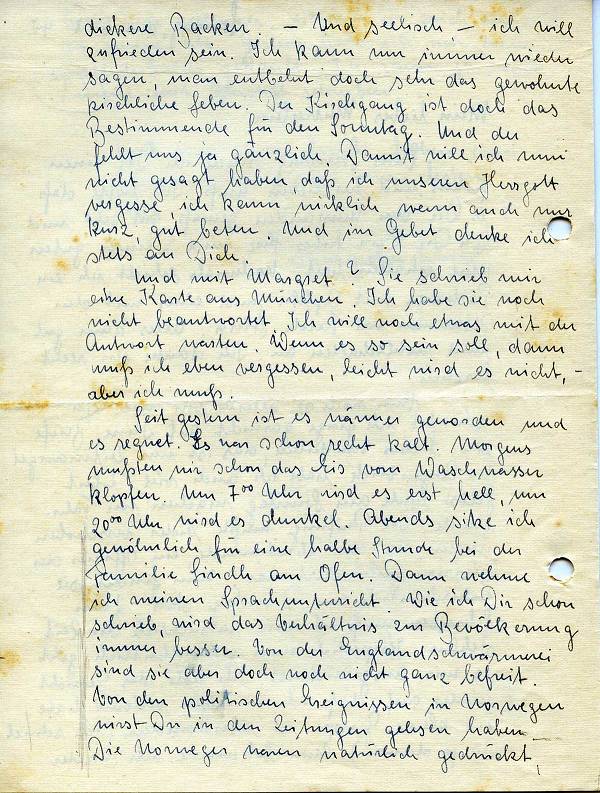 dickere Backen. – Und seelisch – ich will
zufrieden sein. Ich kann nur immer wieder
sagen, man entbehrt doch sehr das gewohnte
kirchliche Leben. Der Kirchgang ist doch das
Bestimmende für den Sonntag. Und der
fehlt uns ja gänzlich. Damit will ich nun
nicht gesagt haben, daß ich unseren Herrgott
vergesse, ich kann wirklich wenn auch nur
kurz, gut beten. Und im Gebet denke ich
stets an Dich.
Und mit Margret? Sie schrieb mir
eine Karte aus München. Ich habe sie noch
nicht beantwortet. Ich will noch etwas mit der
Antwort warten. Wenn es so sein soll, dann
muß ich eben vergessen, leicht wird es nicht, –
aber ich muß.
Seit gestern ist es wärmer geworden und
es regnet. Es war schon recht kalt. Morgens
mußten wir schon das Eis vom Waschwasser
klopfen. Um 7⁰⁰ Uhr wird es erst hell, um
20⁰⁰ Uhr wird es dunkel. Abends sitze ich
gewöhnlich für eine halbe Stunde bei der
Familie Lindh am Ofen. Dann nehme
ich meinen Sprachunterricht. Wie ich Dir schon
schrieb, wird das Verhältnis zur Bevölkerung
immer besser. Von der Englandschwärmerei
sind sie aber doch noch nicht ganz befreit.
Von den politischen Ereignissen in Norwegen
wirst Du in den Zeitungen gelesen haben.
Die Norweger waren natürlich gedrückt,